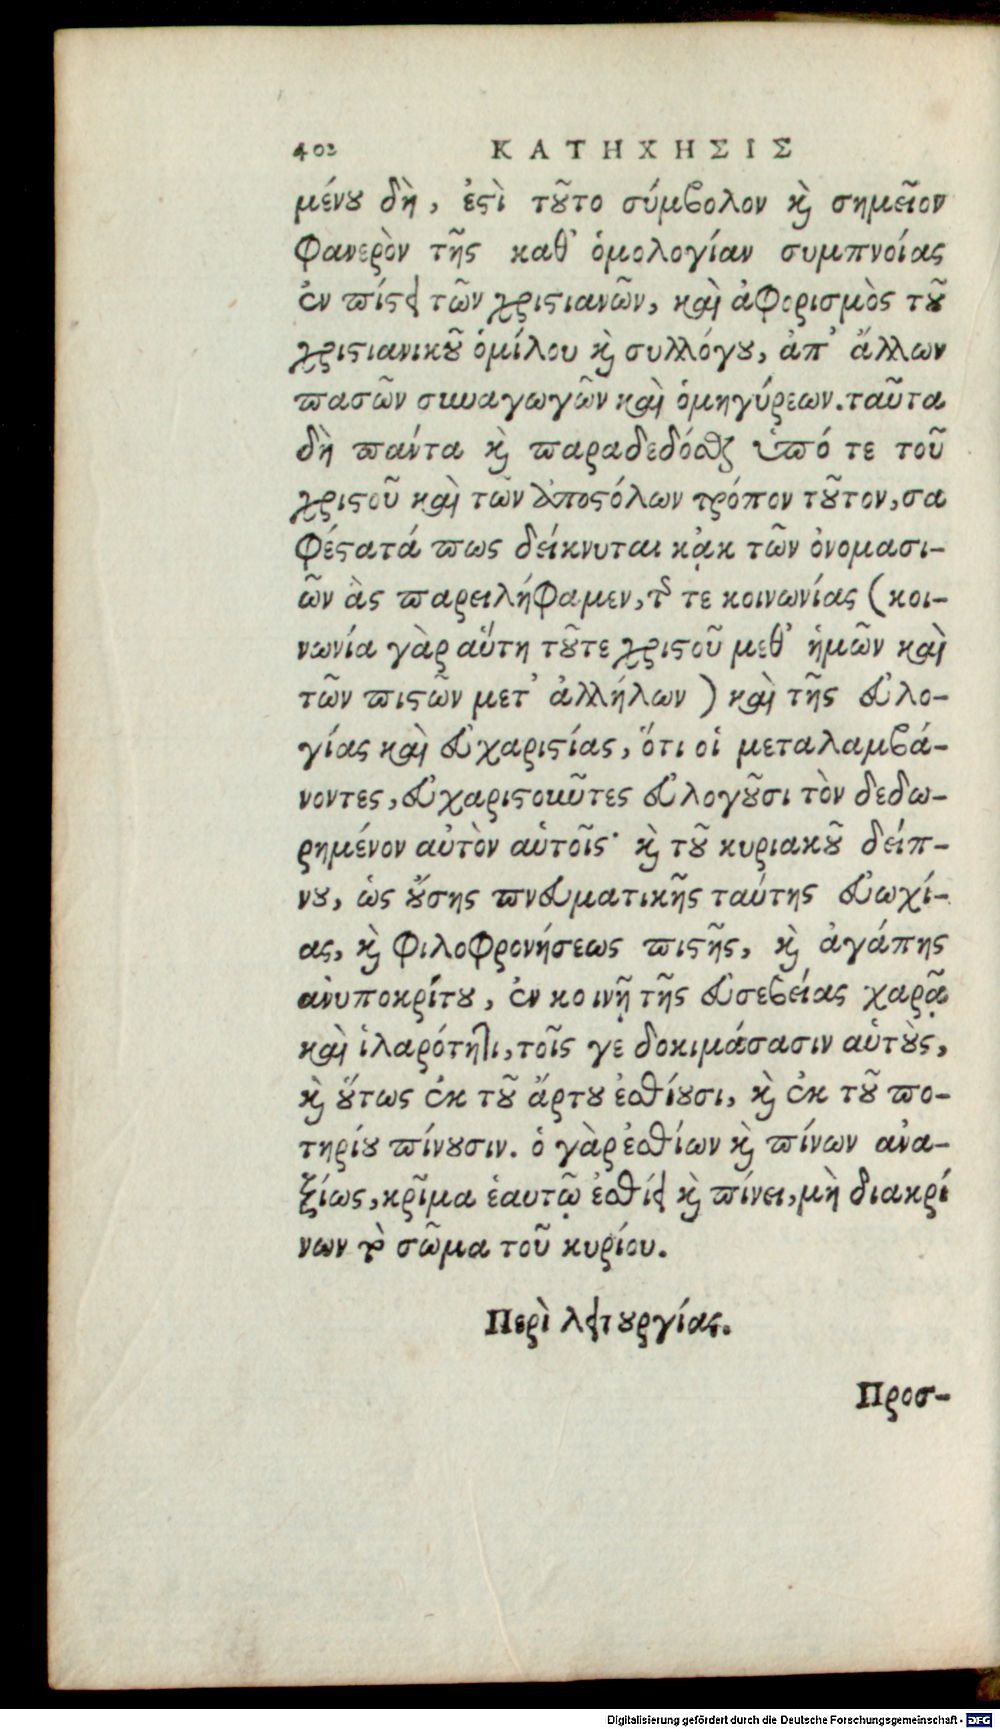 402 ΚΑΤΗΧΗΣΙΣ
μένȣ δὴ, ἐϛὶ τȣ͂το σύμϐολον ϗ̀ σημεῖον
φανερὸν τῆς καθ’ ὁμολογίαν συμπνοίας
ἐν πίϛει τῶν χριϛιανῶν, καὶ ἀφορισμὸς τȣ͂
χριϛιανικȣ͂ ὁμίλου ϗ̀ συλλόγȣ, ἀπ’ ἄλλων
πασῶν συναγωγῶν καὶ ὁμηγύρεων. ταῦτα
δὴ πάντα ϗ̀ παραδεδόσθαι ὑπό τε τοῦ
χριϛοῦ καὶ τῶν ἀποϛόλων τρόπον τȣ͂τον, σα
φέϛατά πως δείκνυται κᾀκ τῶν ὀνομασι-
ῶν ἃς παρειλήφαμεν, τῆς τε κοινωνίας (κοι-
νωνία γὰρ αὕτη τȣ͂τε χριϛοῦ μεθ’ ἡμῶν καὶ
τῶν πιϛῶν μετ’ ἀλλήλων) καὶ τῆς εὐλο-
γίας καὶ εὐχαριϛίας, ὅτι οἱ μεταλαμϐά-
νοντες, εὐχαριϛοιῦτες εὐλογȣ͂σι τὸν δεδω-
ρημένον αὐτὸν αὑτοῖς· ϗ̀ τȣ͂ κυριακȣ͂ δείπ-
νȣ, ὡς ȣ̓́σης πνευματικῆς ταύτης εὐωχί-
ας, ϗ̀ φιλοφρονήσεως πιϛῆς, ϗ̀ ἀγάπης
ἀνυποκρίτȣ, ἐν κοινῇ τῆς εὐσεϐείας χαρᾷ
καὶ ἱλαρότητι, τοῖς γε δοκιμάσασιν αὑτȣ̀ς,
ϗ̀ ȣ̔́τως ἐκ τȣ͂ ἄρτȣ ἐσθίȣσι, ϗ̀ ἐκ τȣ͂ πο-
τηρίȣ πίνȣσιν. ὁ γὰρ ἐσθίων ϗ̀ πίνων ἀνα-
ξίως, κρῖμα ἑαυτῷ ἐσθίει ϗ̀ πίνει, μὴ διακρί
νων τὸ σῶμα τοῦ κυρίου.
Περὶ λειτȣργίας.
Προσ-
Digitalisierung gefördert durch die Deutsche Forschungsgemeinschaft - DFG